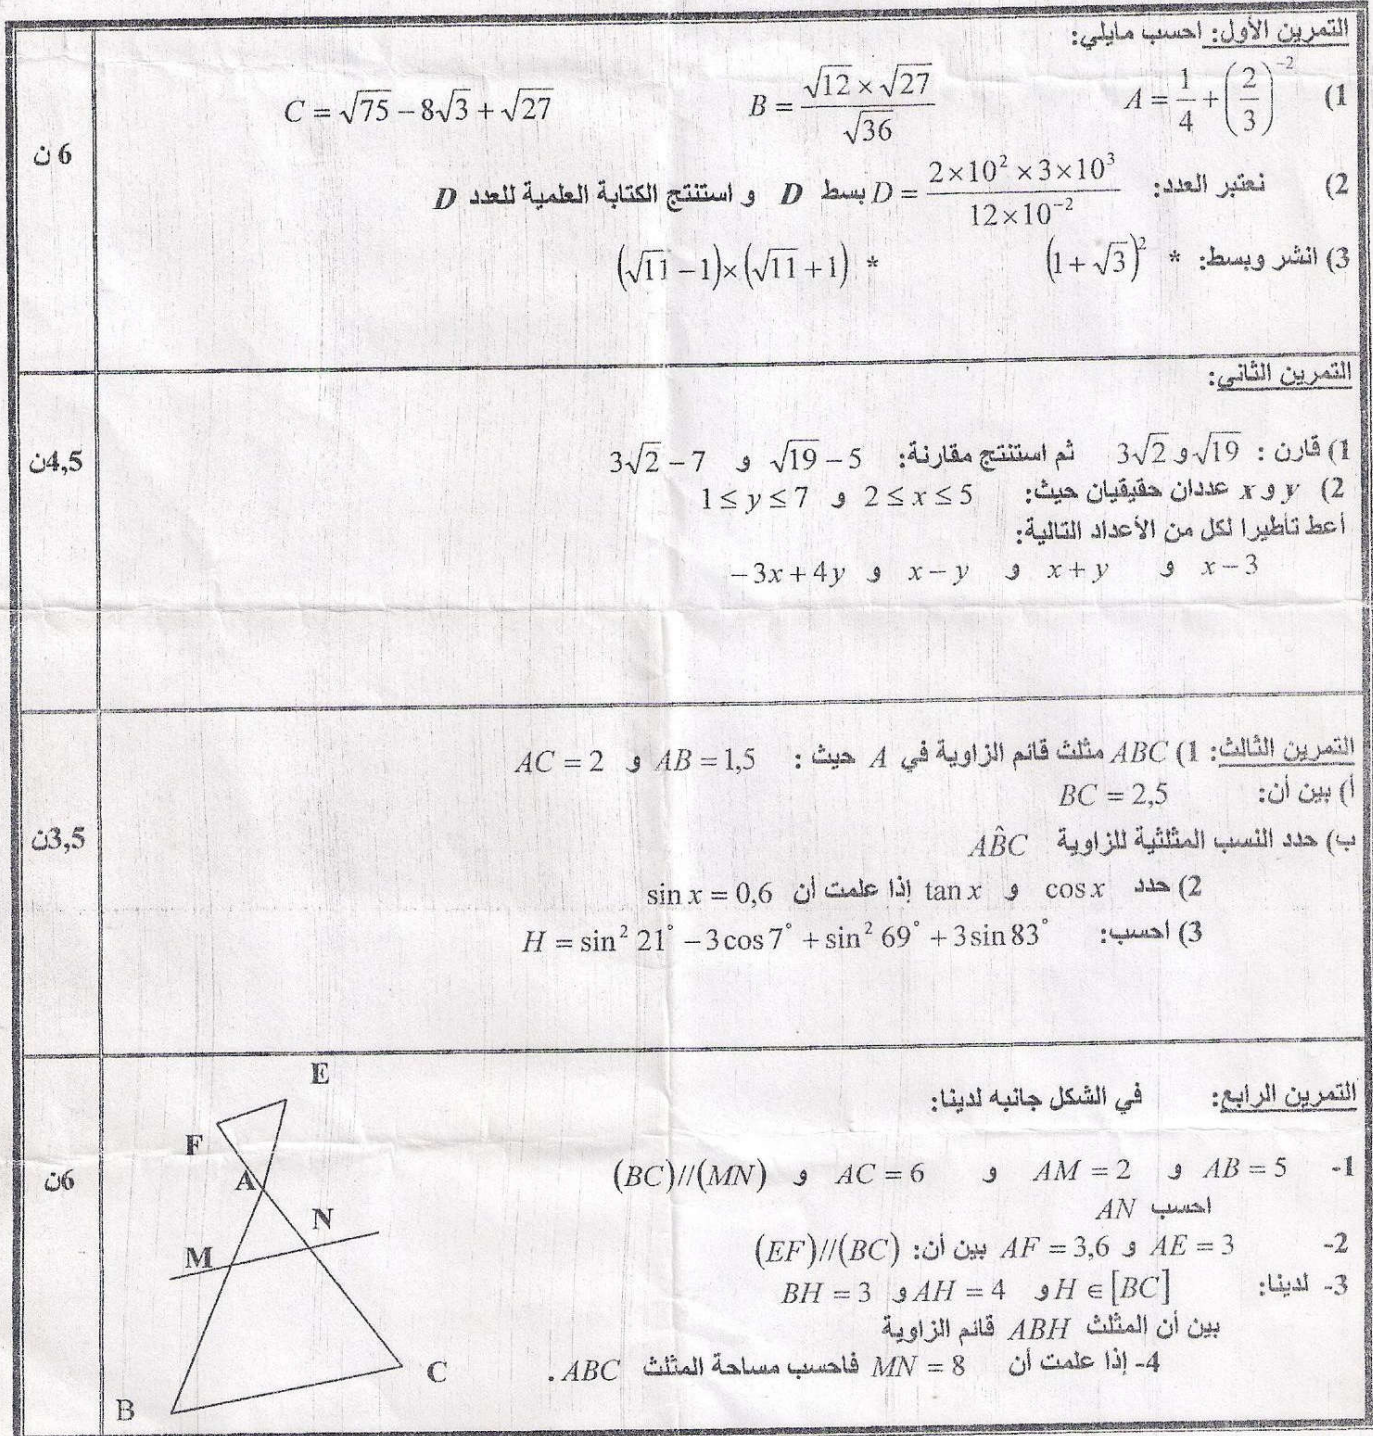 التمرين الأول: احسب مايلي:
1) A = 1/4 + (2/3)^{-2}    B = (√12 × √27)/√36    C = √75 − 8√3 + √27
6 ن
2) نعتبر العدد: D = (2×10² × 3×10³)/(12×10^{-2}) بسط D و استنتج الكتابة العلمية للعدد D
3) انشر وبسط: * (1 + √3)²    * (√11 − 1)×(√11 + 1)
التمرين الثاني:
4,5ن
1) قارن : √19 و 3√2 ثم استنتج مقارنة: √19 − 5 و 3√2 − 7
2) y و x عددان حقيقيان حيث: 2 ≤ x ≤ 5 و 1 ≤ y ≤ 7
أعط تأطيرا لكل من الأعداد التالية:
x − 3 و x + y و x − y و −3x + 4y
التمرين الثالث: 1) ABC مثلث قائم الزاوية في A حيث : AB = 1,5 و AC = 2
أ) بين أن: BC = 2,5
3,5ن
ب) حدد النسب المثلثية للزاوية AB̂C
2) حدد cos x و tan x إذا علمت أن sin x = 0,6
3) احسب: H = sin² 21° − 3cos 7° + sin² 69° + 3sin 83°
التمرين الرابع: في الشكل جانبه لدينا:
6ن
1- AB = 5 و AM = 2 و AC = 6 و (BC)//(MN)
احسب AN
2- AE = 3 و AF = 3,6 بين أن: (EF)//(BC)
3- لدينا: H ∈ [BC] و AH = 4 و BH = 3
بين أن المثلث ABH قائم الزاوية
4- إذا علمت أن MN = 8 فاحسب مساحة المثلث ABC .
E
F
A
N
M
C
B